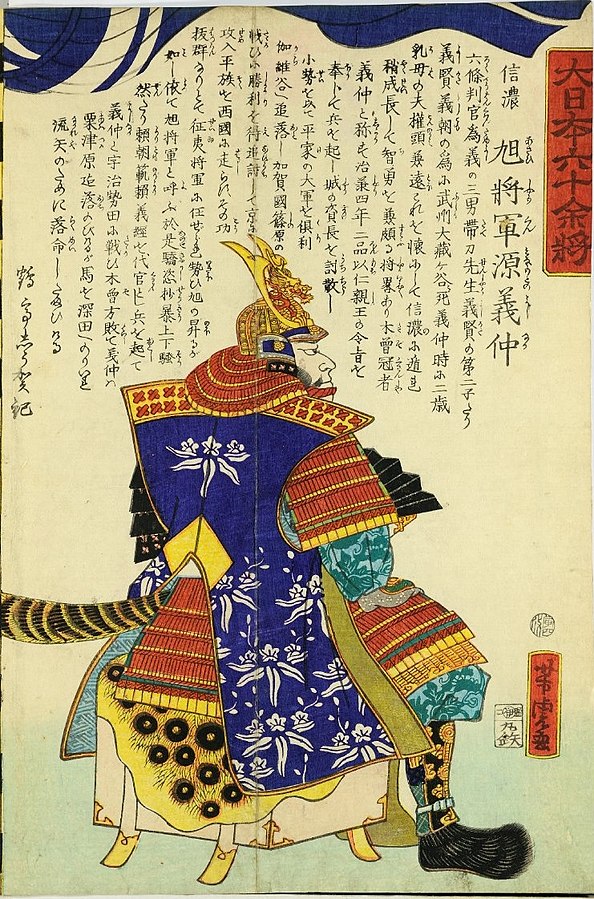 大日本六十余将
信濃
旭將軍源義仲
六條判官為義の三男帯刀先生義賢の第二子たり
義賢義朝の為に武州大蔵ヶ谷死義仲時に二歳
乳母の夫権頭兼遠これを懐にして信濃に遁る
稍成長して智勇を兼頗る将畧あり木曽冠者
義仲と称す治兼四年二品以仁親王の令旨を
奉じて兵を起し城の資長を討散し
小勢を以て平家の大軍を倶利
伽羅谷に追落し加賀國篠原の
戦ひに勝利を得追討して京に
攻入平族を西國に走らすその功
抜群なりとて征夷将軍に任ぜらる勢ひ旭の昇るが
如し依て旭将軍と呼ふ於是驕恣抄暴上下騒
然たり頼朝範頼義経を代官とし兵を起て
義仲と宇治勢田に戦ひ木曽方敗て義仲は
粟津原に落のびるが馬を深田にのりいれ
流矢のために落命したまひける
記
芳虎画